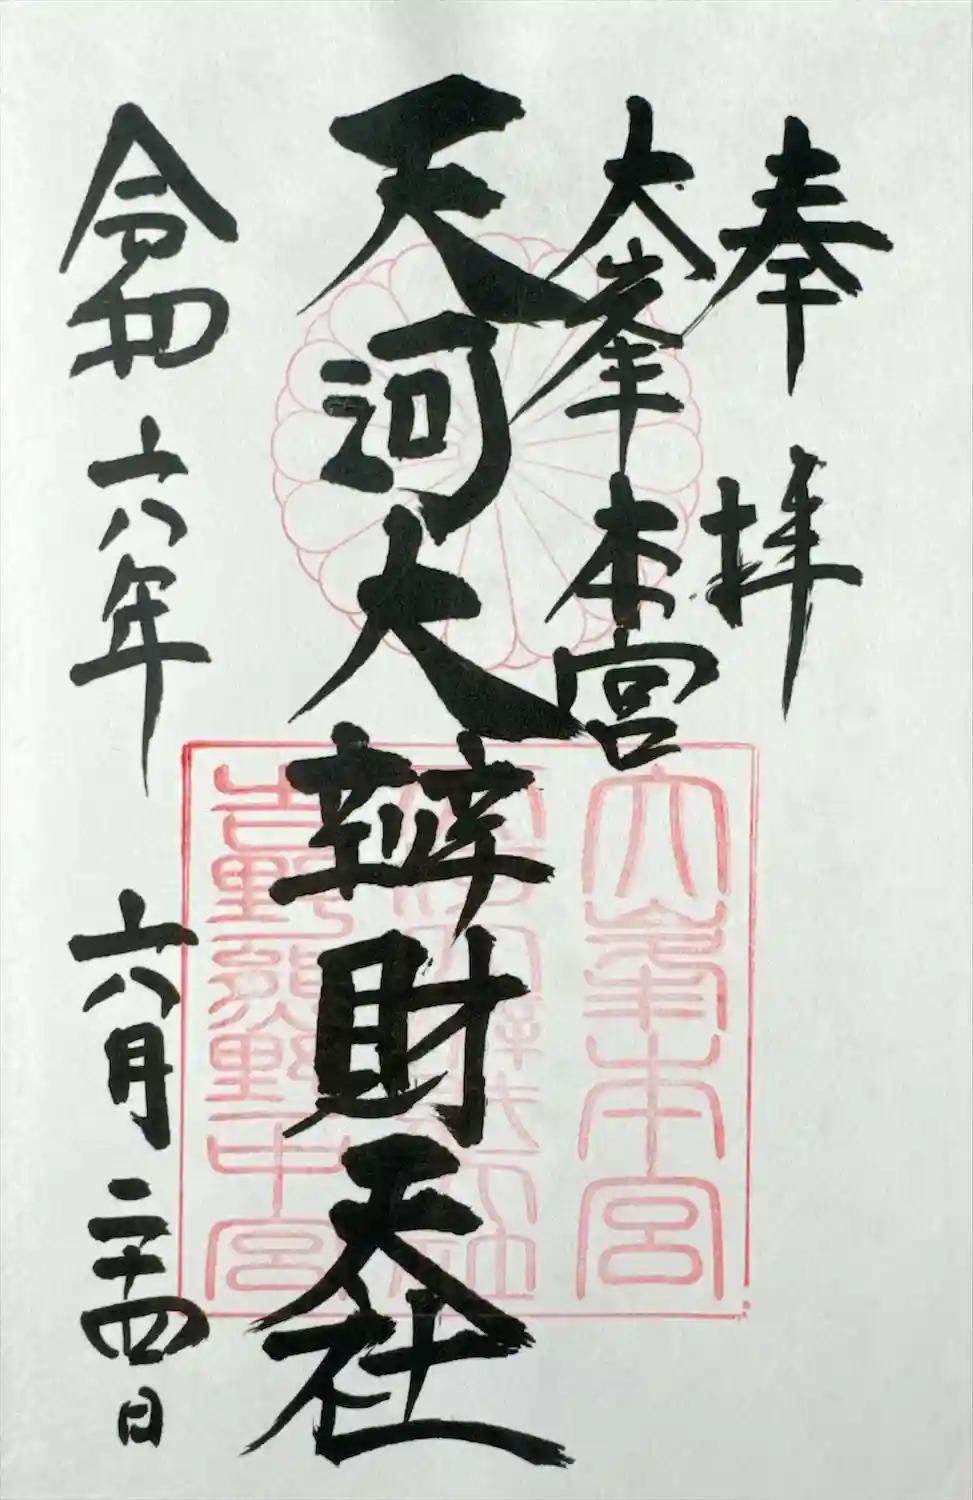 奉拝
大峯本宮
天河大辨財天社
令和六年 六月 二十四日
大峯本宮
吉野熊野中宮